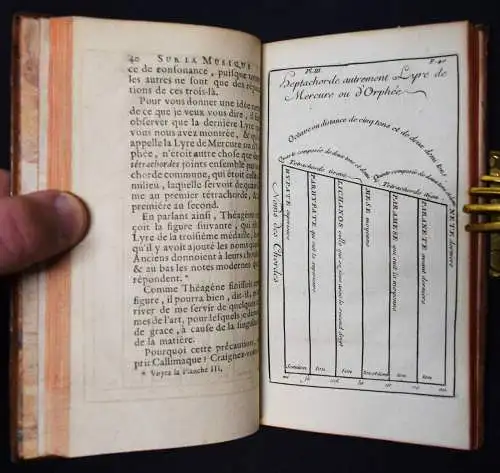 40 SUR LA MUSIQUE
ce de consonance, puisque toutes
les autres ne sont que des répéti-
tions de ces trois-là.
Pour vous donner une idée nette
de ce que je veux dire, il faut
observer que la derniére Lyre que
nous vous avons montrée, & qu'on
appelle la Lyre de Mercure ou d'Or-
phée, n'étoit autre chose que deux
tétrachordes joints ensemble par une
chorde commune, qui étoit celle du
milieu, laquelle servoit de quatriéme
me au premier tétrachorde, &
premiére au second.
En parlant ainsi, Théagéne
çoit la figure suivante, qui
Lyre de la troisiéme médaille,
qu'il y avoit ajouté les noms que
Anciens donnoient à leurs chordes
& au bas les notes modernes qui
répondent. *
Comme Théagéne finissoit
figure, il pourra bien, dit-il,
river de me servir de quelques
mes de l'art, pour lesquels je
de grace, à cause de la singula-
de la matière.
Pourquoi cette précaution,
prit Callimaque: Craignez-vous
* Voyez la Planche III.
Pl. III P. 40
Heptachorde autrement Lyre de
Mercure ou d'Orphée
Octave ou distance de cinq tons et de deux demi tons
Quarte composée de deux tons et demi
Quarte composée de deux tons et demi
Tetrachorde
Tetrachorde
Noms des Chordes
HYPATE
PARHYPATE qui suit la
LICHANOS celle qui se
MESE moyenne
PARAMESE qui suit la moyenne
PARANETE avant derniere
NETE derniere
Semiton ton ton Semiton ton ton
mi fa sol la